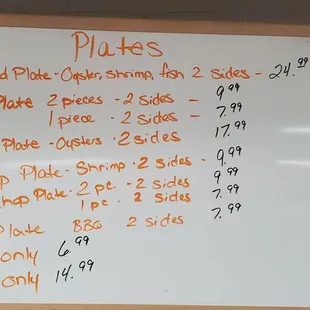 Plates
d Plate - Oyster, shrimp, fish 2 sides - 24.99
Plate 2 pieces - 2 sides - 9.99
1 piece - 2 sides - 7.99
Plate - Oysters - 2 sides 17.99
p Plate - Shrimp - 2 sides - 9.99
hop Plate - 2 pc. - 2 sides 9.99
1 pc. 2 sides 7.99
Plate BBQ 2 sides 7.99
only 6.99
only 14.99